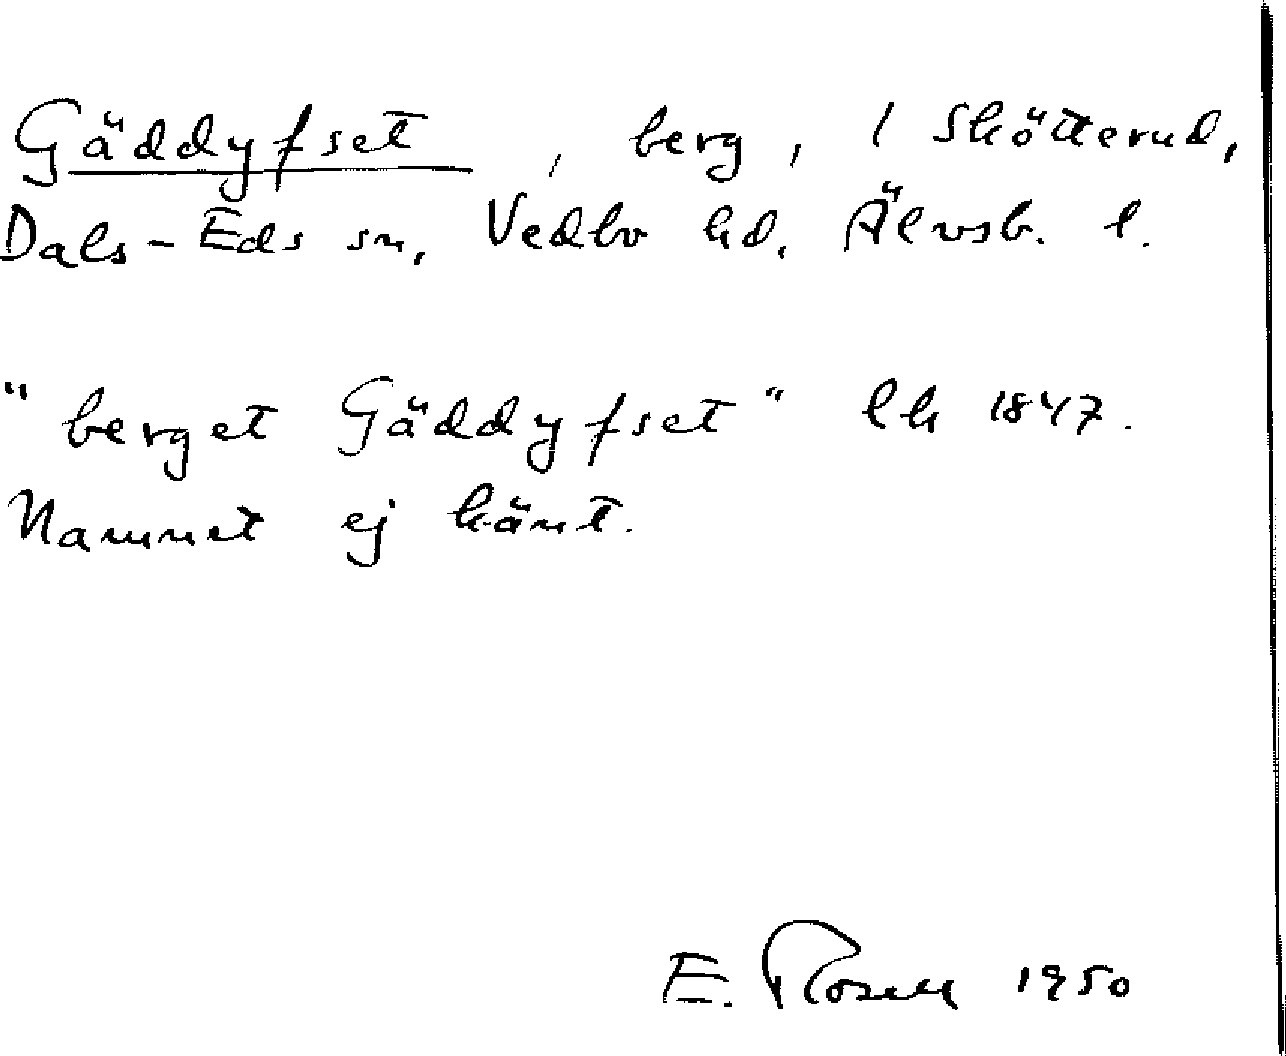 Gäddyfset, berg, / Skötterud,
Dals-Eds sn, Vedbo hd. Älvsb. l.
"berget Gäddyfset" lh 1847.
Namnet ej känt.
E. Rosell 1950